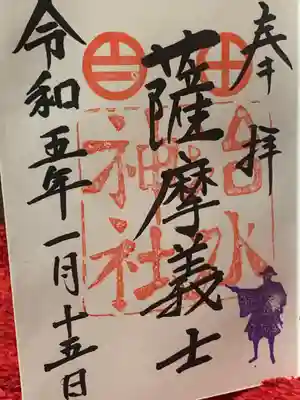 奉拝
薩摩義士
治水
神社
令和五年一月十五日